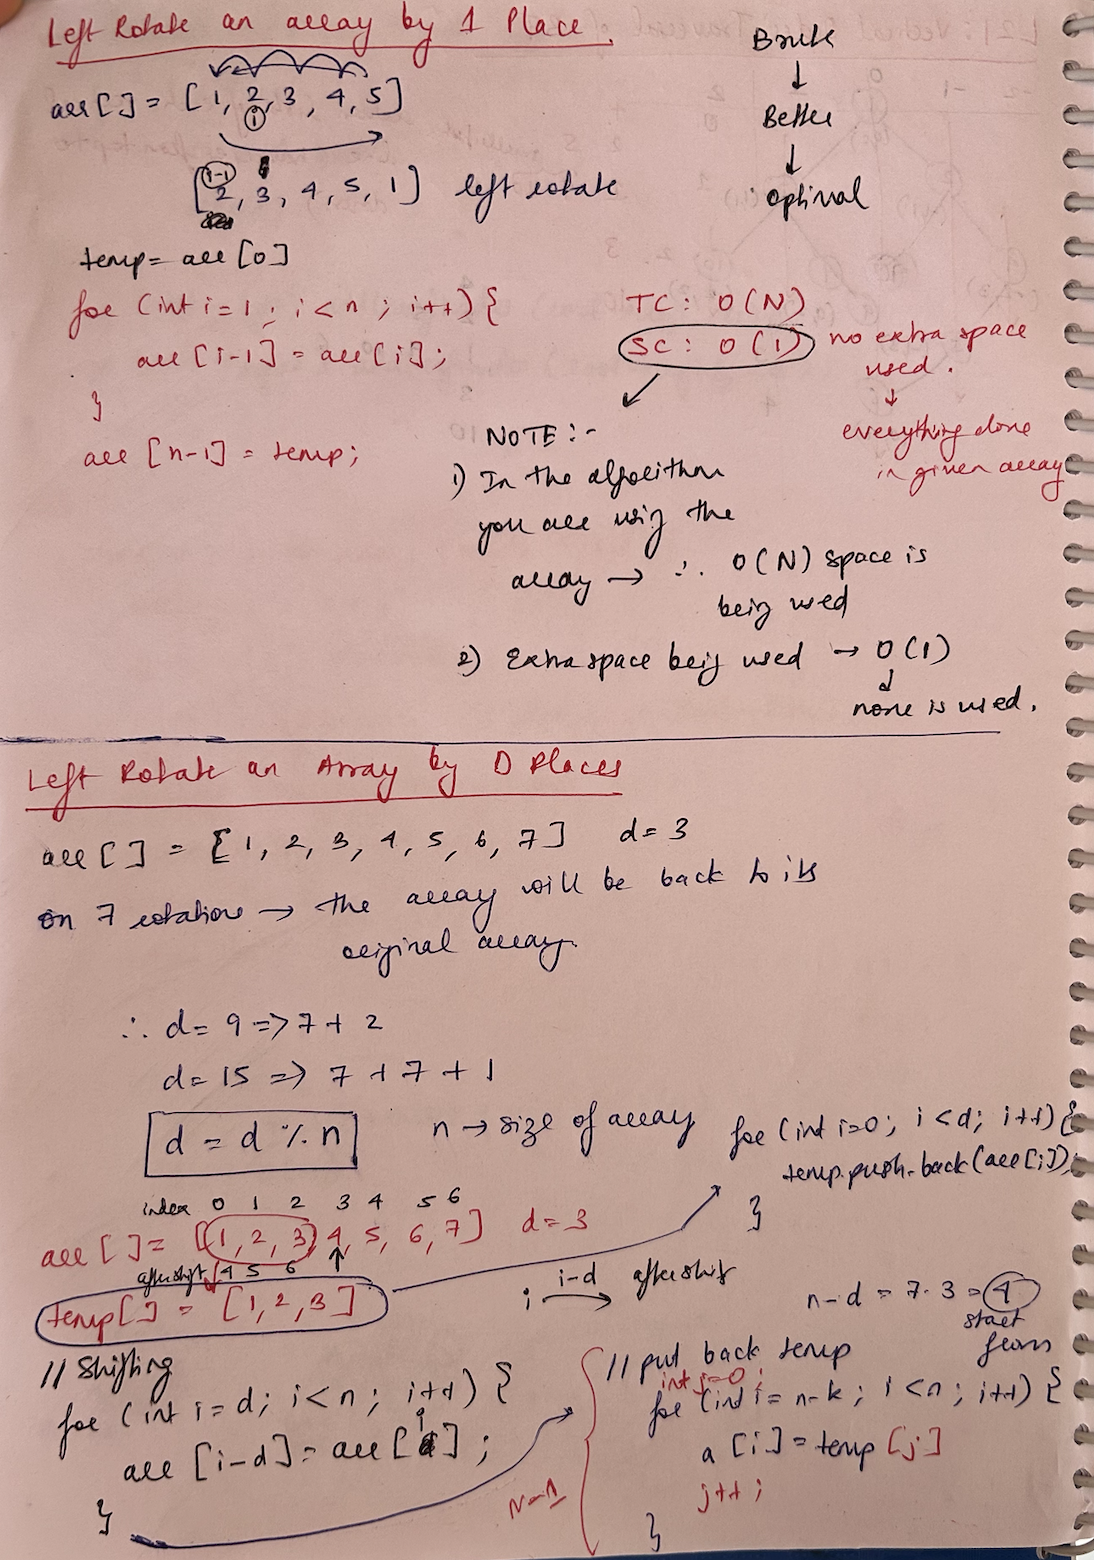 Left Rotate an array by 1 Place.
Brute
↓
Better
↓
optimal
arr[] = [1, 2, 3, 4, 5]
i
i-1
[2, 3, 4, 5, 1] left rotate
temp = arr[0]
for (int i=1; i<n; i++) {
arr[i-1] = arr[i];
}
arr[n-1] = temp;
TC: O(N)
SC: O(1) no extra space used.
↓
everything done
in given array
NOTE:-
1) In the algorithm
you are using the
array → ∴ O(N) space is
being used
2) Extra space being used → O(1)
↓
none is used.
Left Rotate an Array by D Places
arr[] = [1, 2, 3, 4, 5, 6, 7] d=3
On 7 rotations → the array will be back to its
original array.
∴ d = 9 => 7 + 2
d = 15 => 7 + 7 + 1
d = d % n
n → size of array
for (int i=0; i<d; i++) {
temp.push_back(arr[i]);
}
index 0 1 2 3 4 5 6
arr[] = [1, 2, 3, 4, 5, 6, 7] d=3
after shift 4 5 6
temp[] = [1, 2, 3]
i → i-d after shift
n-d = 7-3 = 4
start
from
// Shifting
for (int i=d; i<n; i++) {
arr[i-d] = arr[i];
}
// put back temp
int j=0;
for (int i=n-k; i<n; i++) {
a[i] = temp[j]
j++;
}